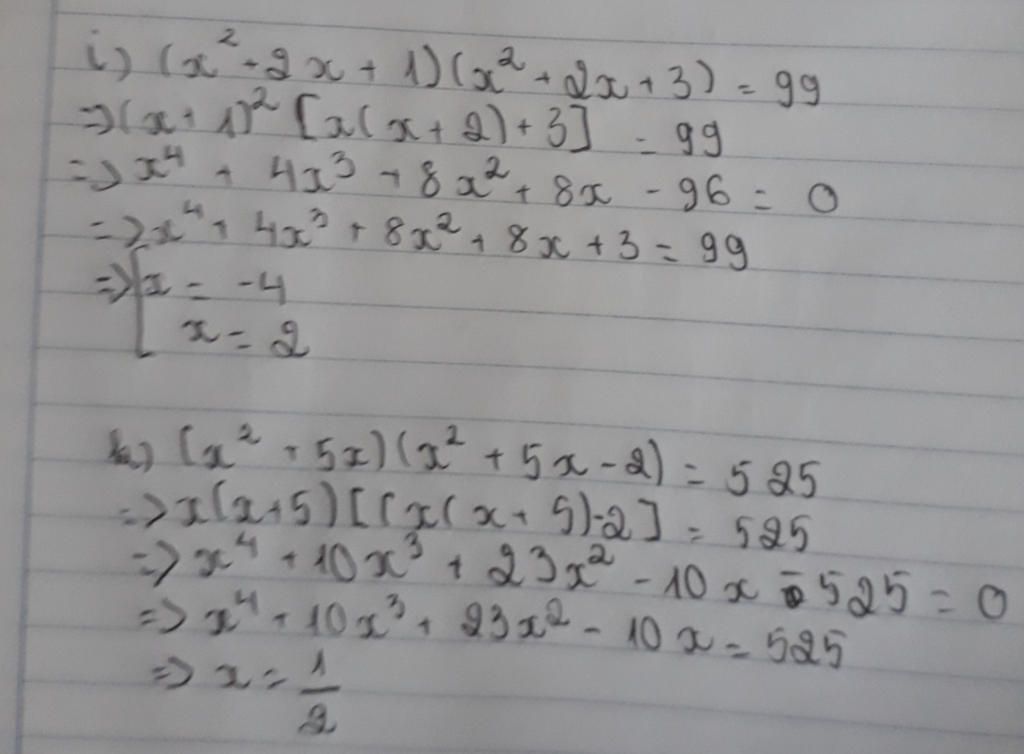 i) (x² + 2x + 1)(x² + 2x + 3) = 99
⇒ (x + 1)² [x(x + 2) + 3] = 99
⇒ x⁴ + 4x³ + 8x² + 8x - 96 = 0
⇒ x⁴ + 4x³ + 8x² + 8x + 3 = 99
⇒ [x = -4
x = 2
k) (x² + 5x)(x² + 5x - 2) = 525
⇒ x(x+5)[(x(x + 5)-2] = 525
⇒ x⁴ + 10x³ + 23x² - 10x - 525 = 0
⇒ x⁴ + 10x³ + 23x² - 10x = 525
⇒ x = 1/2